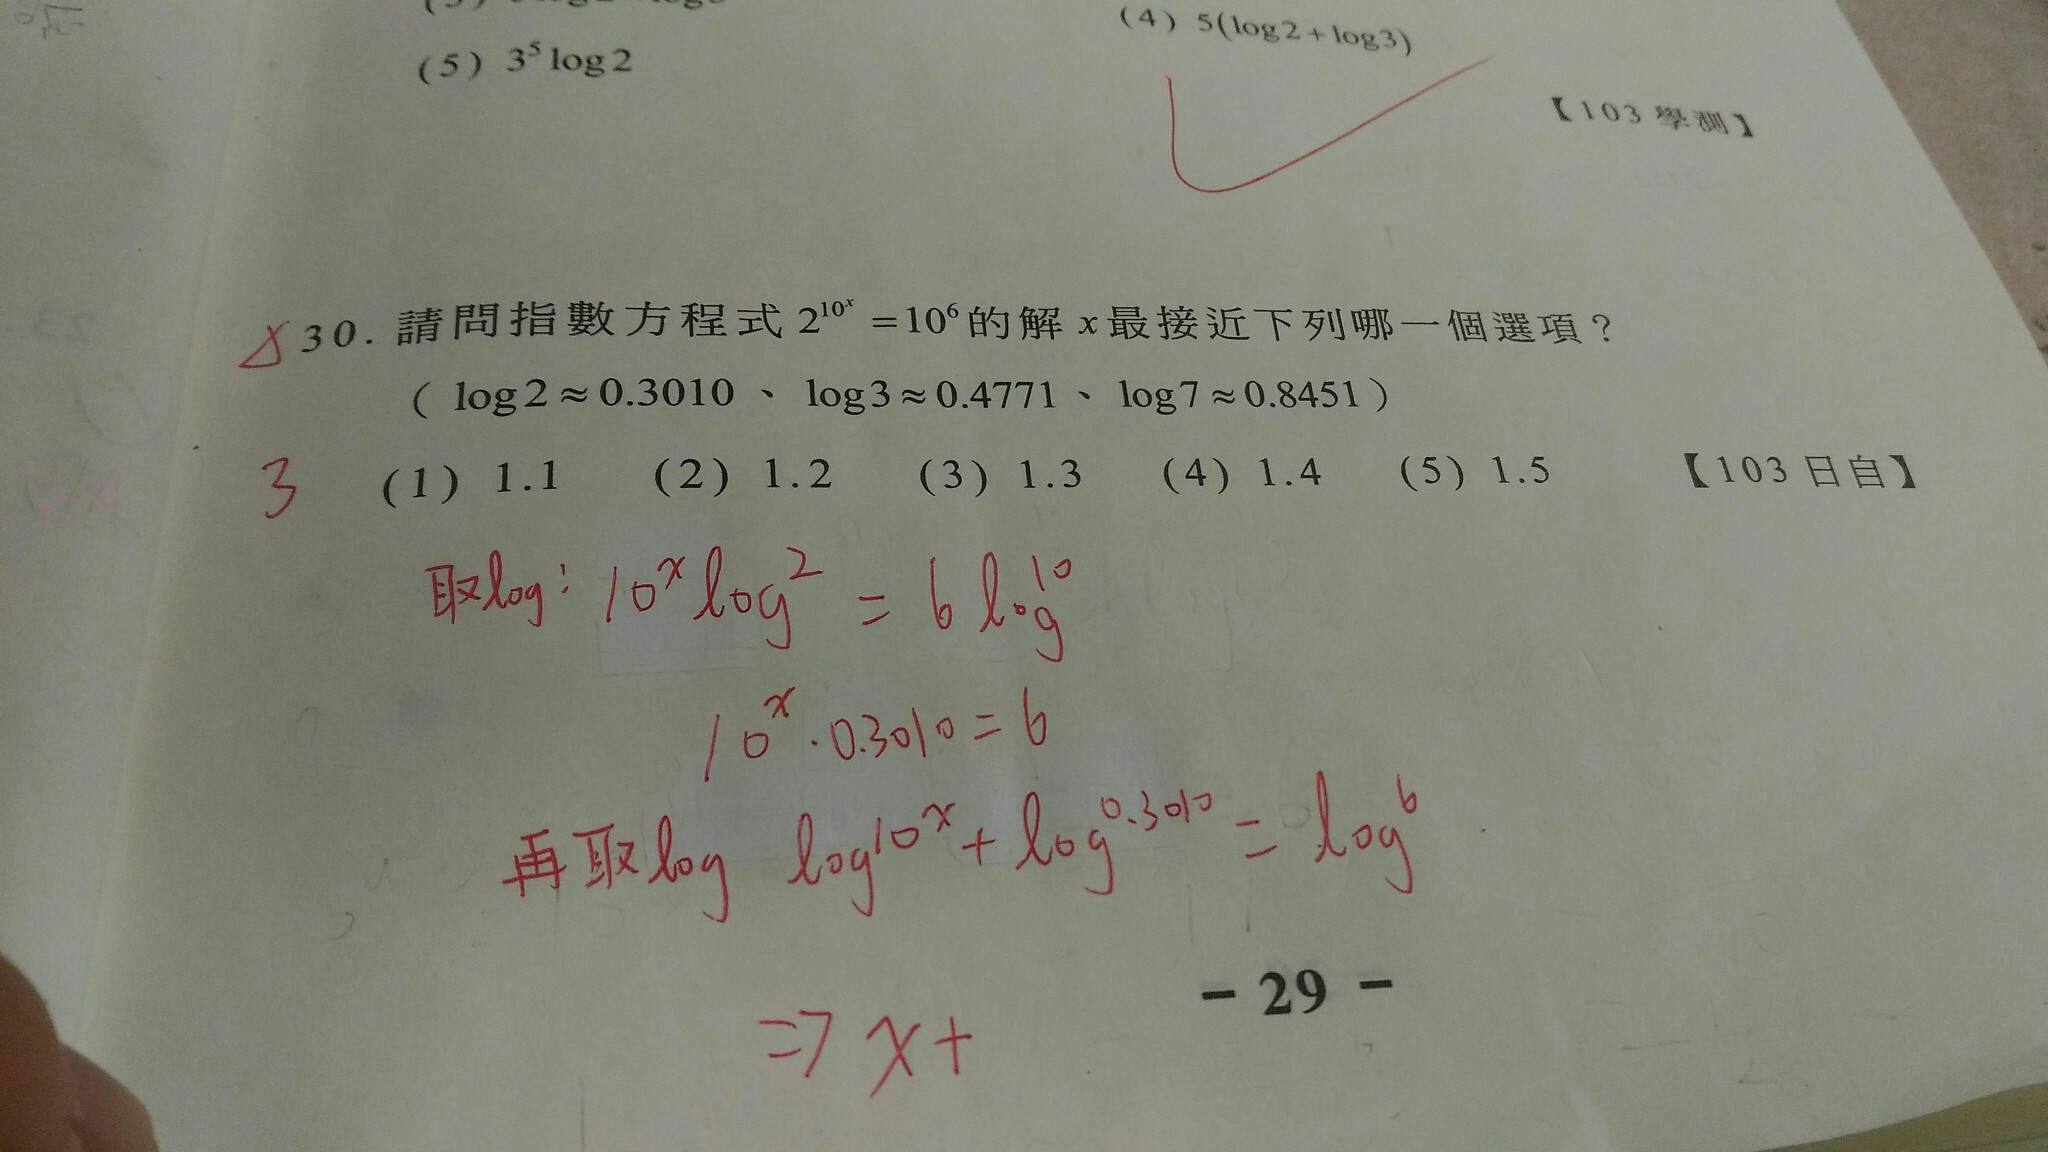 (4) 5(log2+log3)
(5) 3⁵log2
【103 學測】
30. 請問指數方程式 2^{10^x} = 10⁶ 的解 x 最接近下列哪一個選項？
( log2≈0.3010 、 log3≈0.4771 、 log7≈0.8451 )
3 (1) 1.1 (2) 1.2 (3) 1.3 (4) 1.4 (5) 1.5 【103 日自】
取log: 10^x log2 = 6 log10
10^x · 0.3010 = 6
再取log log10^x + log0.3010 = log6
- 29 -
⇒ x+